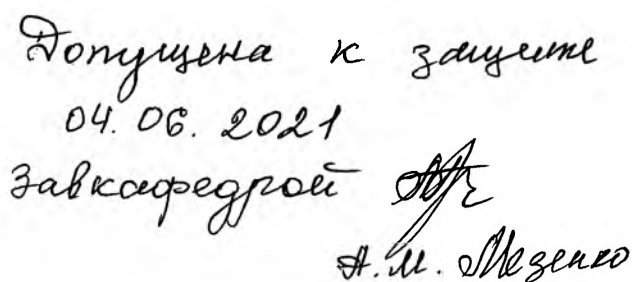 Допущена к защите
04.06.2021
Завкафедрой
А.М. Мезенко